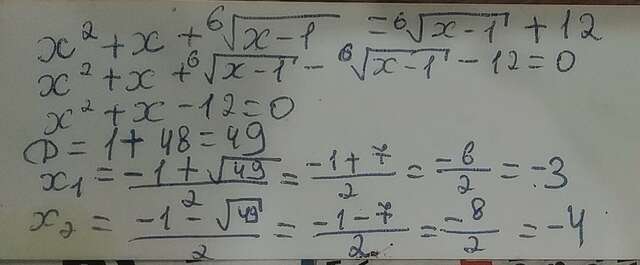 x² + x + ⁶√(x-1) = ⁶√(x-1) + 12
x² + x + ⁶√(x-1) - ⁶√(x-1) - 12 = 0
x² + x - 12 = 0
D = 1 + 48 = 49
x₁ = (-1 + √49)/2 = (-1 + 7)/2 = (-6)/2 = -3
x₂ = (-1 - √49)/2 = (-1 - 7)/2 = (-8)/2 = -4